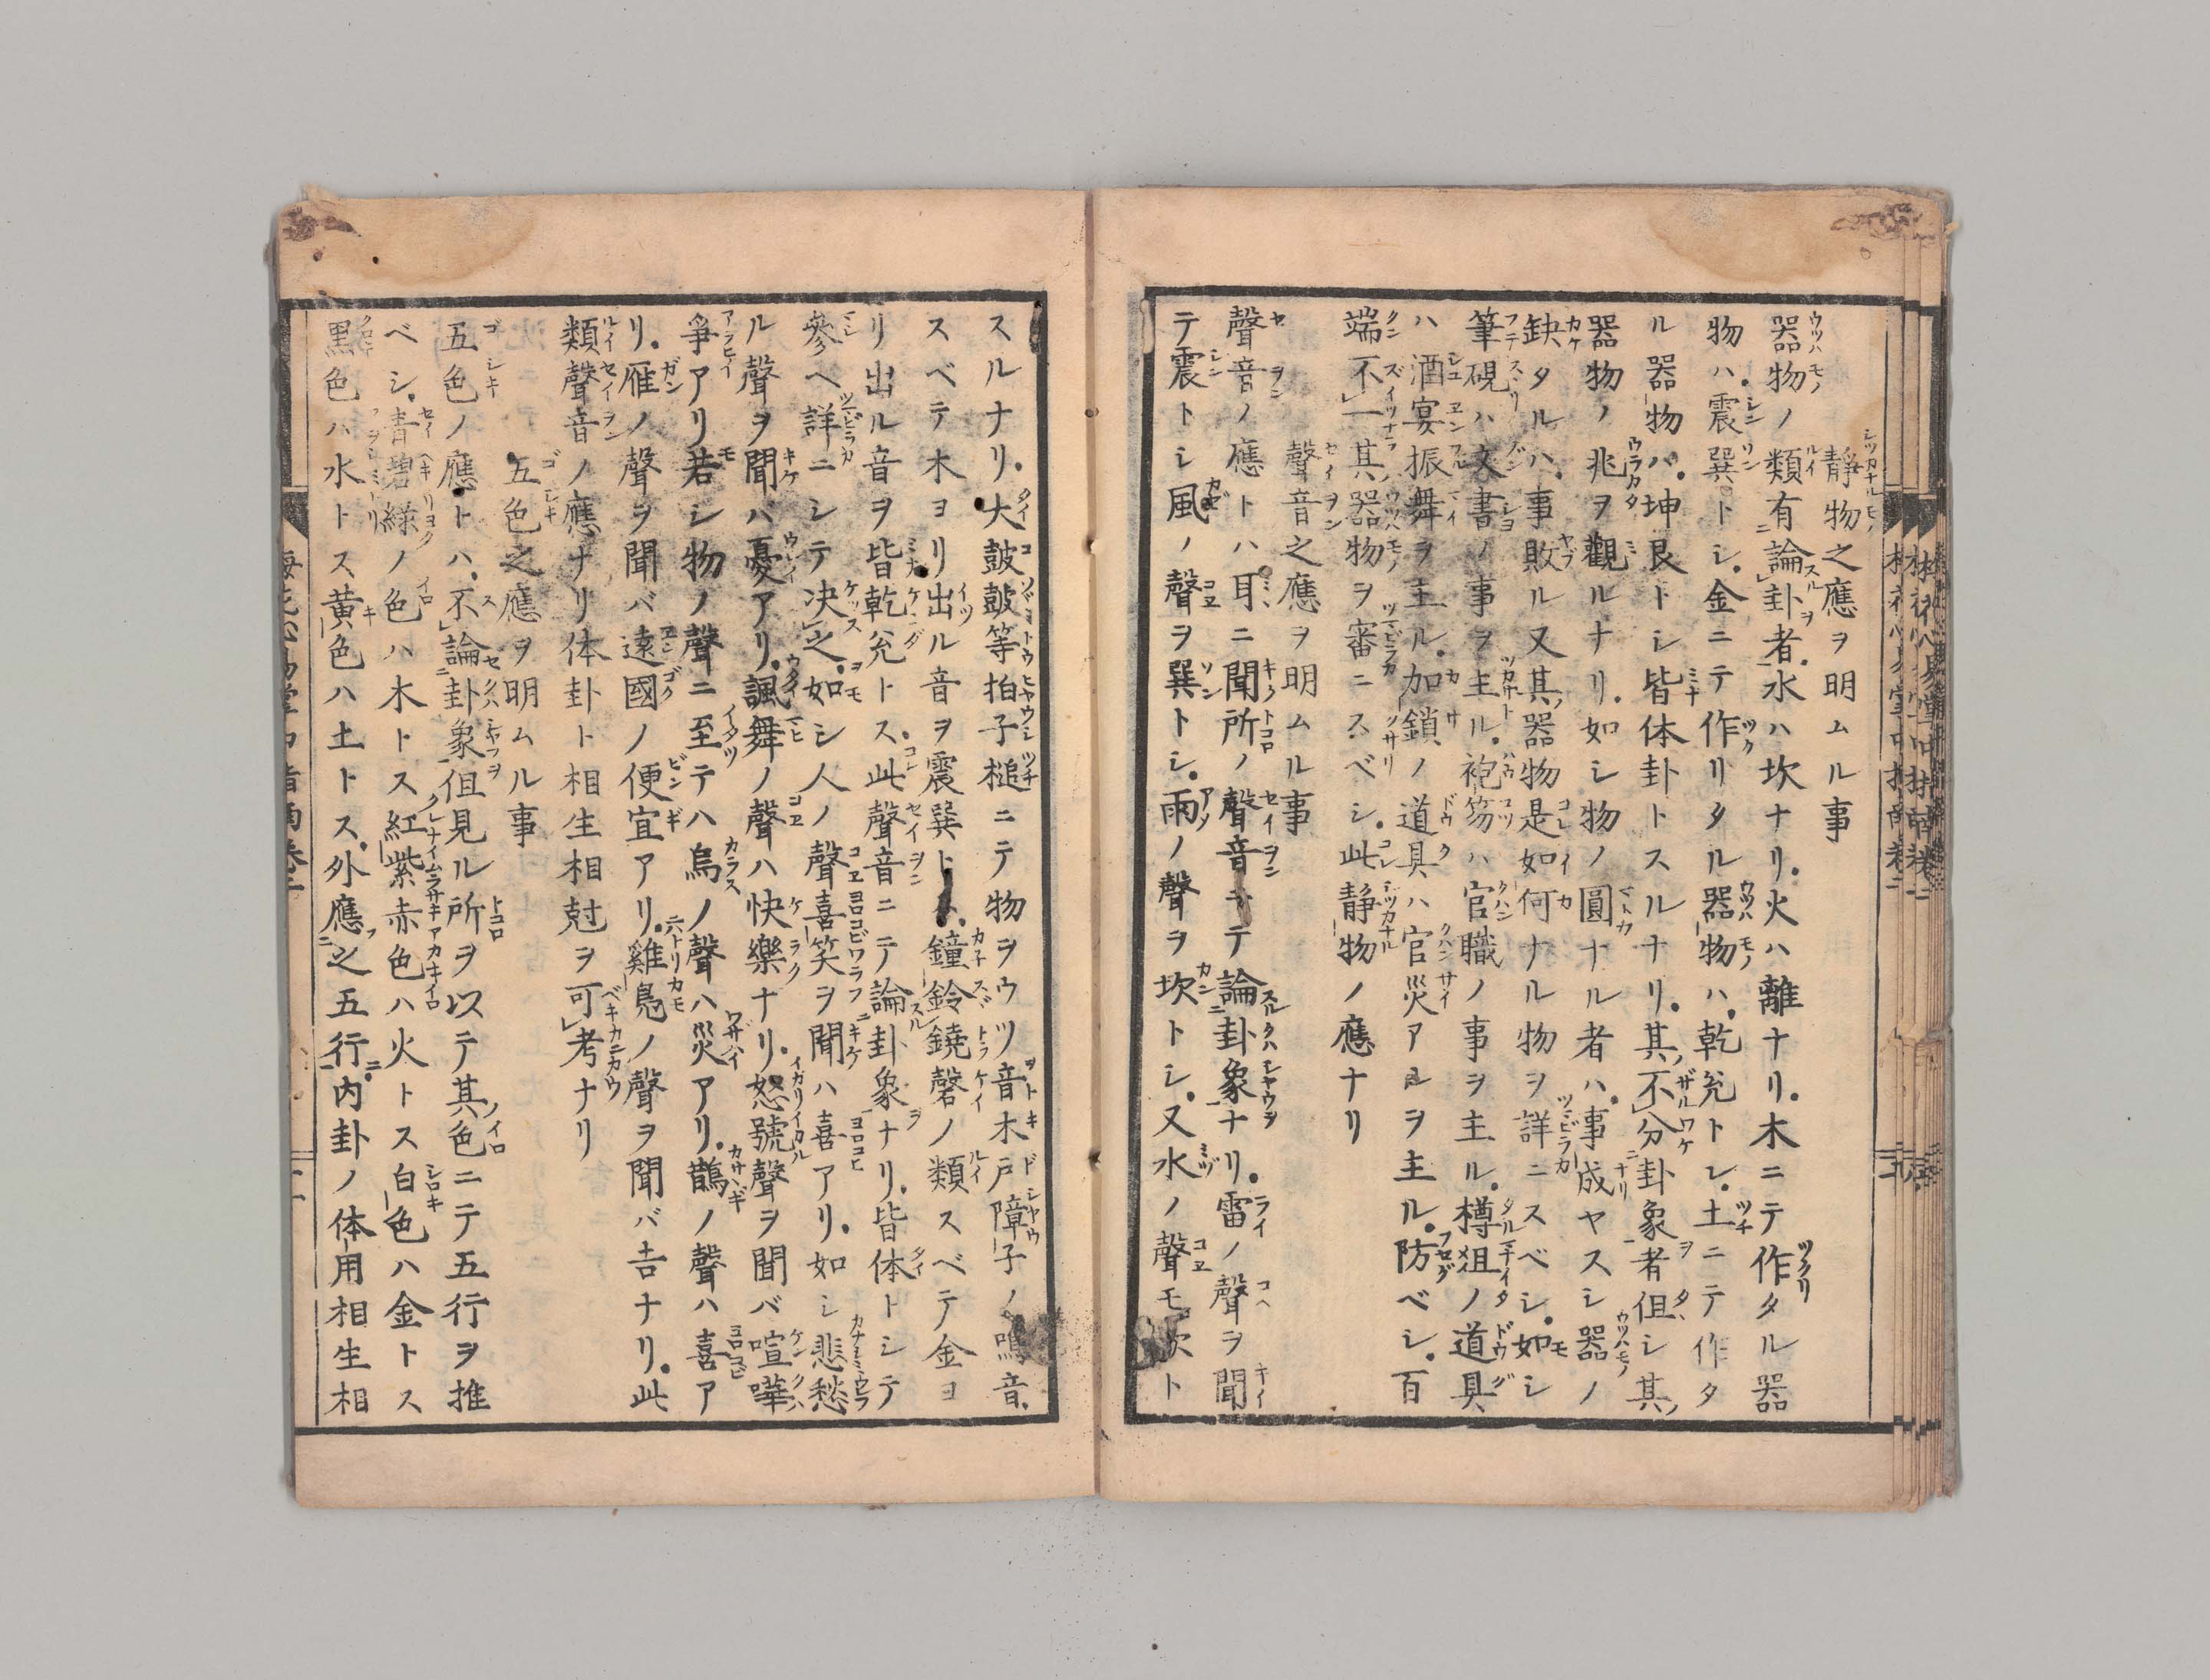 靜物之應ヲ明ムル事
器物ノ類有論卦者水ハ坎ナリ火ハ離ナリ木ニテ作タル器
物ハ震巽トシ金ニテ作リタル器物ハ乾兊トシ土ニテ作タ
ル器物ハ坤艮トシ皆体卦トスルナリ其不分卦象者但シ其
器物ノ兆ヲ觀ルナリ如シ物ノ圓ナル者ハ事成ヤスシ器ノ
缺タルハ事敗ル又其器物是如何ナル物ヲ詳ニスベシ如シ
筆硯ハ文書ノ事ヲ主ル袍笏ハ官職ノ事ヲ主ル樽俎ノ道具
ハ酒宴振舞ヲ主ル加鎖ノ道具ハ官災アルヲ主ル防ベシ百
端不一其器物ヲ審ニスベシ此静物ノ應ナリ
聲音之應ヲ明ムル事
聲音ノ應トハ耳ニ聞所ノ聲音ニテ論卦象ナリ雷ノ聲ヲ聞
テ震トシ風ノ聲ヲ巽トシ雨ノ聲ヲ坎トシ又水ノ聲モ坎ト
スルナリ大鼓鼓等拍子槌ニテ物ヲウツ音木戸障子ノ鳴音
スベテ木ヨリ出ル音ヲ震巽トム鐘鈴鐃磬ノ類スベテ金ヨ
リ出ル音ヲ皆乾兊トス此聲音ニテ論卦象ナリ皆体トシテ
參ヘ詳ニシテ决之如シ人ノ聲喜笑ヲ聞ハ喜アリ如シ悲愁
ル聲ヲ聞ハ憂アリ諷舞ノ聲ハ快樂ナリ怒號聲ヲ聞バ喧嘩
爭アリ若シ物ノ聲ニ至テハ烏ノ聲ハ災アリ鵲ノ聲ハ喜ア
リ雁ノ聲ヲ聞バ遠國ノ便宜アリ雞鳧ノ聲ヲ聞バ吉ナリ此
類聲音ノ應ナリ体卦ト相生相尅ヲ可考ナリ
五色之應ヲ明ムル事
五色ノ應トハ不論卦象但見ル所ヲ以テ其色ニテ五行ヲ推
ベシ青碧緑ノ色ハ木トス紅紫赤色ハ火トス白色ハ金トス
黒色ハ水トス黄色ハ土トス外應之五行内卦ノ体用相生相